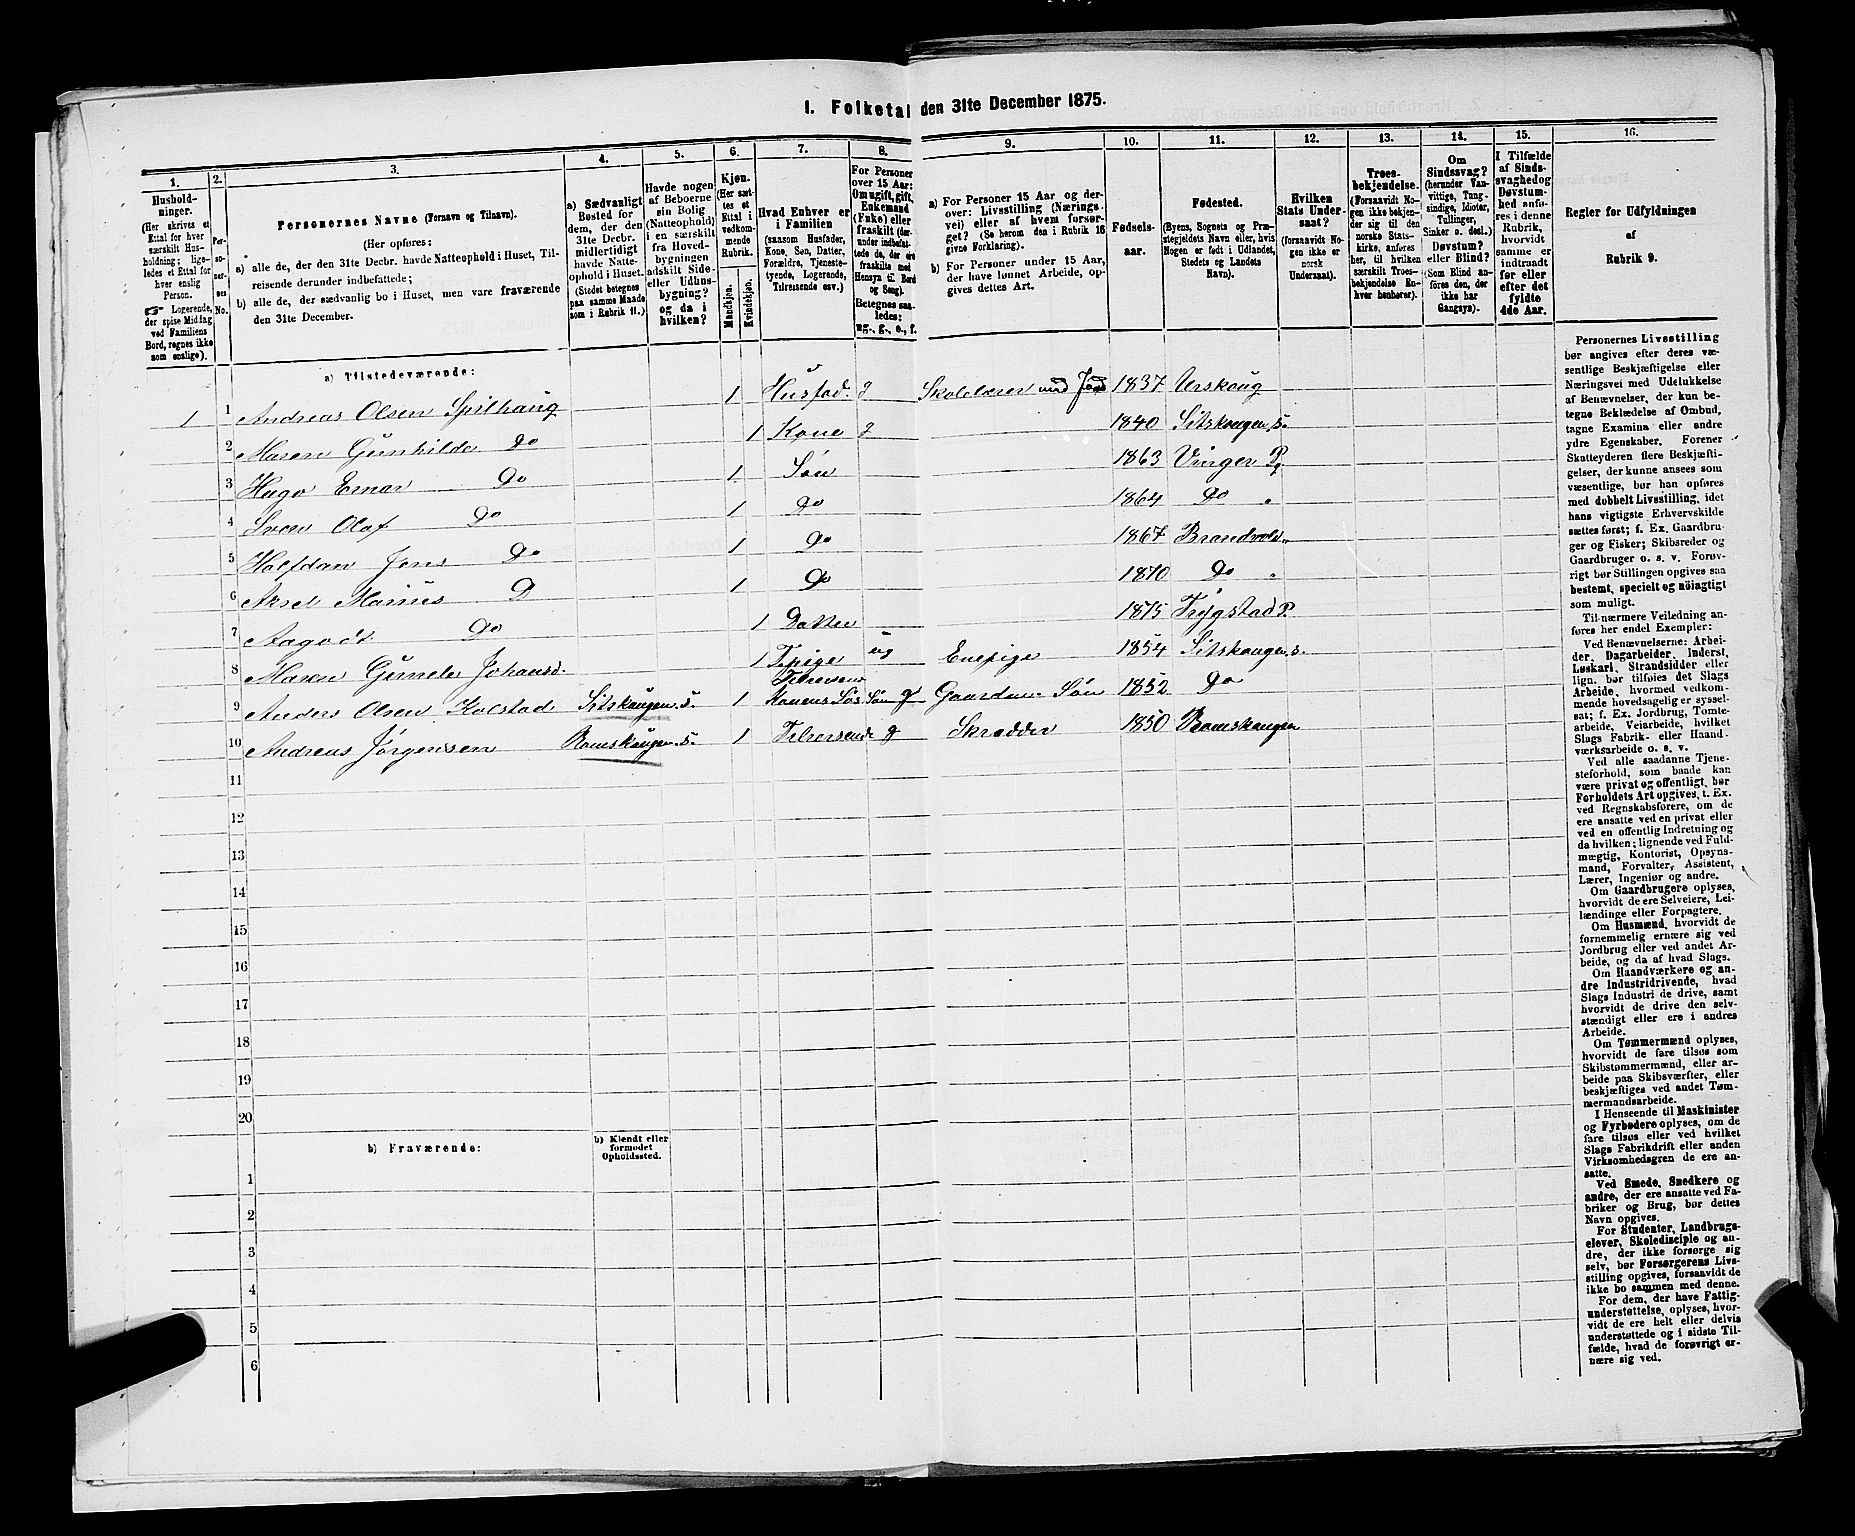 1. Folketal den 31te December 1875.
1. 2. 3. 4. 5. 6. 7. 8. 9. 10. 11. 12. 13. 14. 15. 16.
Hushold-
ninger.
(Her skrives et
Ettal for hver
særskilt Hus-
holdning; lige-
ledes et Ettal for
hver enslig
Person.
☞ Logerende,
der spise Middag
ved Familiens
Bord, regnes ikke
som enslige).
Per-
so-
ner-
nes
No.
Personernes Navne (Fornavn og Tilnavn).
(Her opføres:
a) alle de, der den 31te Decbr. havde Natteophold i Huset, Til-
reisende derunder indbefattede;
b) alle de, der sædvanlig bo i Huset, men vare fraværende
den 31te December.
a) Sædvanligt
Bosted for
dem, der den
31te Decbr.
midlertidigt
havde Natte-
ophold i Huset.
(Stedet betegnes
paa samme Maade
som i Rubrik 11.)
Havde nogen
af Beboerne
sin Bolig
(Natteophold)
i en særskilt
fra Hoved-
bygningen
adskilt Side-
eller Udhus-
bygning?
og da i
hvilken?
Kjøn.
(Her sæt-
tes et
Ettal i
vedkom-
mende
Rubrik.
Mandkjøn.
Kvindekjøn.
Hvad Enhver er
i Familien
(saasom Husfader,
Kone, Søn, Datter,
Forældre, Tjeneste-
tyende, Logerende,
Tilreisende osv.)
For Personer
over 15 Aar:
Om ugift, gift,
Enkemand
(Enke) eller
fraskilt (der-
under indbefat-
tede de, der ere
fraskilte med
Hensyn til Bord
og Seng).
Betegnes saa-
ledes:
ug., g., e., f.
a) For Personer 15 Aar og der-
over: Livsstilling (Nærings-
vei) eller af hvem forsør-
get? (Se herom den i Rubrik 16
givne Forklaring).
b) For Personer under 15 Aar,
der have lønnet Arbeide, op-
gives dettes Art.
Fødsels-
aar.
Fødested.
(Byens, Sognets og Præ-
stegjeldets Navn eller, hvis
Nogen er født i Udlandet,
Stedets og Landets
Navn).
Hvilken
Stats Under-
saat?
(forsaavidt No-
gen ikke er
norsk
Undersaat).
Troes-
bekjendelse.
(Forsaavidt No-
gen ikke bekjen-
der sig til den
norske Stats-
kirke, anføres
her, til hvilken
særskilt Troes-
bekjendelse En-
hver henhører).
Om
Sindssvag?
(herunder Van-
vittige, Tung-
sindige, Idioter,
Tullinger,
Sinker o. desl.)
Døvstum?
eller Blind?
(Som Blind an-
føres den, der
ikke har
Gangsyn).
I Tilfælde
af Sinds-
svaghed og
Døvstum-
hed anfø-
res i denne
Rubrik,
hvorvidt
samme er
indtraadt
før eller
efter det
fyldte
4de Aar.
Regler for Udfyldningen
af
Rubrik 9.
a) Tilstedeværende:
1 1 Andreas Olsen Spilhaug 1 Husfad. g Skolelærer med Jord 1837 Urskoug
2 Maren Gunhilde Do 1 Kone g 1840 Sitskougen, S.
3 Hugo Einar Do 1 Søn 1863 Vinger P.
4 Sven Olaf Do 1 Do 1864 Do "
5 Halfdan Jens Do 1 Do 1867 Brandvold "
6 Aksel Marius D 1 Do 1870 Do "
7 Aagodt Do 1 Datter 1875 Trygstad P.
8 Maren Gunelie Johansd. 1 T.pige ug Enepige 1854 Sitskougen. S.
9 Anders Olsen Kolstad Sitskougen. S. 1 Tilreisende Konens Søs. Søn g Gaardm. Søn 1852 Do
10 Andreas Jørgensen Romskougen. S. 1 Tilreisende g Skrædder 1850 Romskougen
11
12
13
14
15
16
17
18
19
20
b) Fraværende: b) Kjendt eller
formodet
Opholdssted.
1
2
3
4
5
6
Personernes Livsstilling
bør angives efter deres væ-
sentlige Beskjæftigelse eller
Næringsvei med Udelukkelse
af Benævnelser, der kun be-
tegne Beklædelse af Ombud,
tagne Examina eller andre
ydre Egenskaber. Forener
Skatteyderen flere Beskjæfti-
gelser, der kunne ansees som
væsentlige, bør han opføres
med dobbelt Livsstilling, idet
hans vigtigste Erhvervskilde
sættes først; f. Ex. Gaardbru-
ger og Fisker; Skibsreder og
Gaardbruger o. s. v. Forøv-
rigt bør Stillingen opgives saa
bestemt, specielt og nöiagtigt
som muligt.
Til nærmere Veiledning an-
føres her endel Exempler:
Ved Benævnelserne: Arbei-
der, Dagarbeider, Inderst,
Løskarl, Strandsidder eller
lign. bør tilføies det Slags
Arbeide, hvormed vedkom-
mende hovedsagelig er syssel-
sat; f. Ex. Jordbrug, Tomte-
arbeide, Veiarbeide, hvilket
Slags Fabrik- eller Haand-
værksarbeide o. s. v.
Ved alle saadanne Tjene-
steforhold, som baade kan
være privat og offentligt, bør
Forholdets Art opgives, t. Ex.
ved Regnskabsførere, om de
ere ansatte ved en privat eller
ved en offentlig Indretning og
da hvilken; lignende ved Fuld-
mægtig, Kontorist, Opsyns-
mand, Forvalter, Assistent,
Lærer, Ingeniør og andre.
Om Gaardbrugere oplyses,
hvorvidt de ere Selveiere, Lei-
lændinge eller Forpagtere.
Om Husmænd, hvorvidt de
fornemmelig ernære sig ved
Jordbrug eller ved andet Ar-
beide, og da af hvad Slags.
Om Haandværkere og an-
dre Industridrivende, hvad
Slags Industri de drive, samt
hvorvidt de drive den selv-
stændigt eller ere i andres
Arbeide.
Om Tømmermænd oplyses,
hvorvidt de fare tilsøs som
Skibstømmermænd, eller ar-
beide paa Skibsværfter, eller
beskjæftiges ved andet Tøm-
mermandsarbeide.
I Henseende til Maskinister
og Fyrbødere oplyses, om de
fare tilsøs eller ved hvilket
Slags Fabrikdrift eller anden
Virksomhedsgren de ere an-
satte.
Ved Smede, Snedkere og
andre, der ere ansatte ved Fa-
briker og Brug, bør dettes
Navn opgives.
For Studenter, Landbrugs-
elever, Skoledisciple og an-
dre, der ikke forsørge sig
selv, bør Forsørgerens Livs-
stilling opgives, forsaavidt de
ikke bo sammen med denne.
For dem, der have Fattig-
understøttelse, oplyses, hvor-
vidt de ere helt eller delvis
understøttede og i sidste Til-
fælde, hvad de forøvrigt er-
nære sig ved.